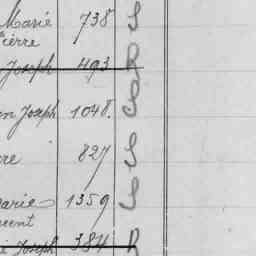 Marie 738 S
Pierre
Joseph 493 R
n Joseph 1048. S
re 827 S
arie 1359 S
cent
Joseph 384 R